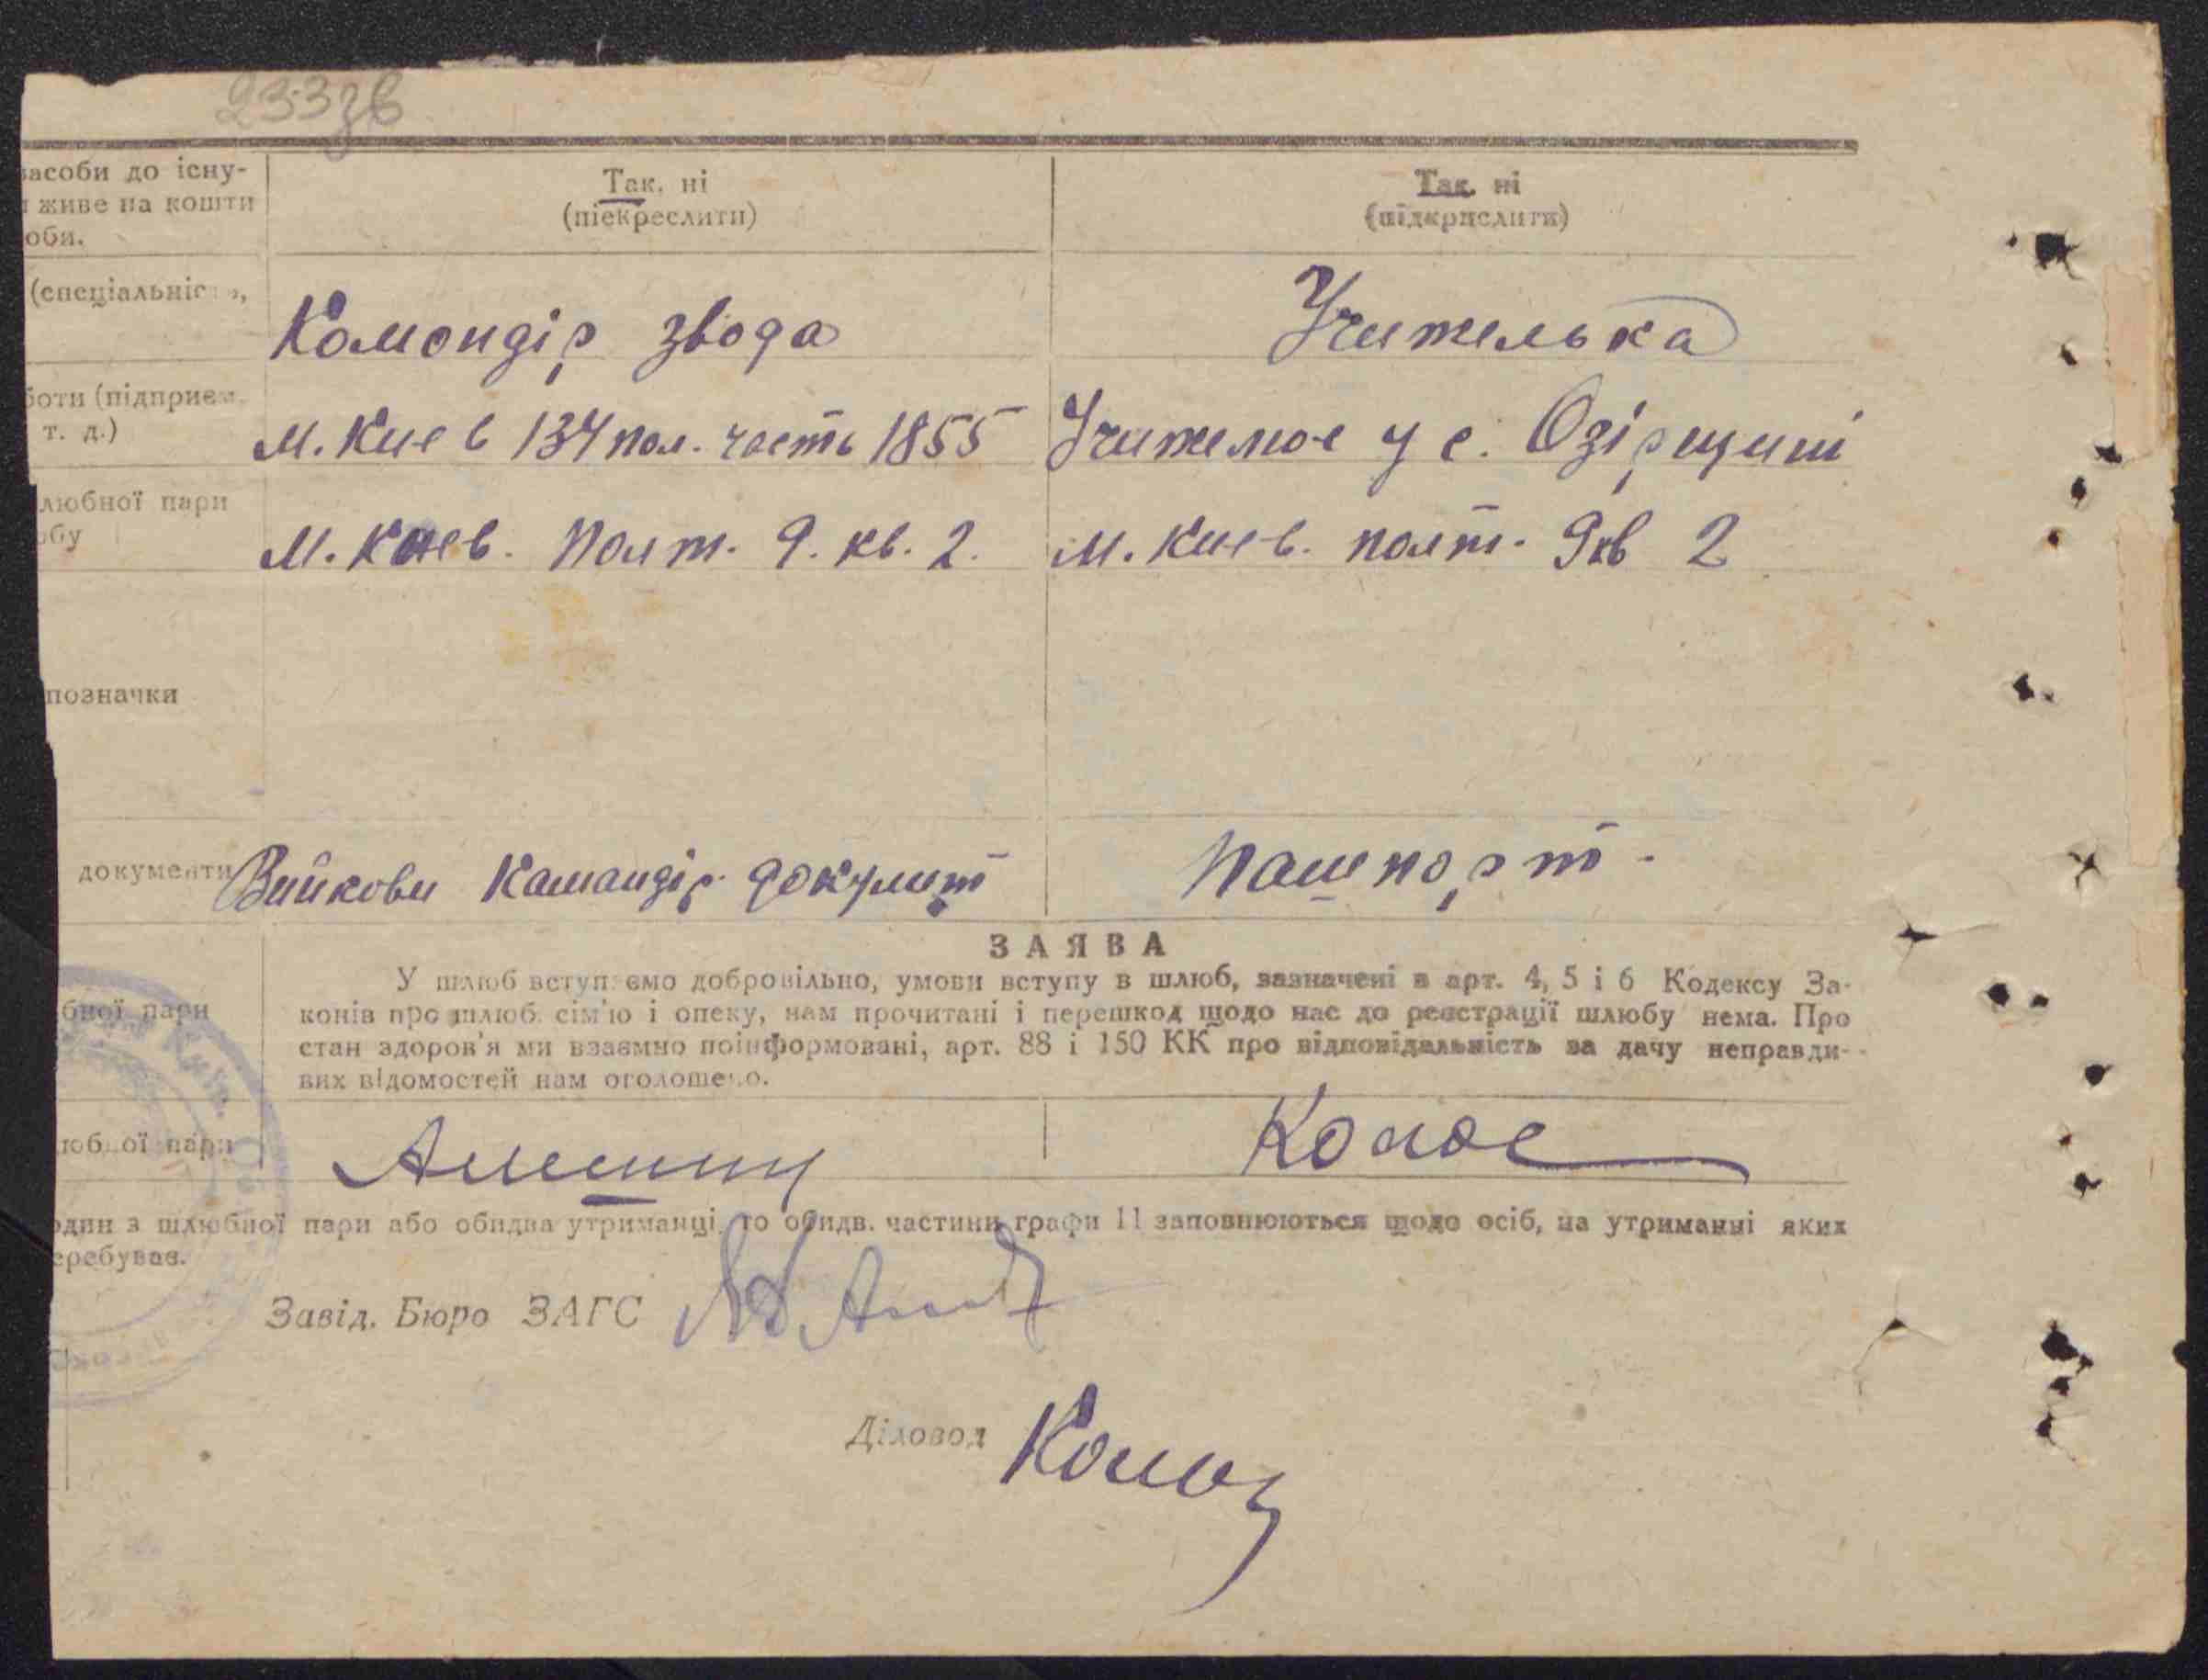 233зв
засоби до існу-
живе на кошти
оби.
Так. ні
(піекреслити)
Так. ні
(підкрислити)
(спеціальність,
Комондір звода
Учителька
боти (підприєм.
т. д.)
м. Киев 134 пол. часть 1855
Учителює у с. Озірщині
любної пари
обу
м. Киев. Полт. 9. кв. 2.
м. Киев. полт. 9 кв 2
позначки
документи
Вийкови Командір. документ
Пашпорт.
ЗАЯВА
У шлюб вступаємо добровільно, умови вступу в шлюб, зазначені в арт. 4, 5 і 6 Кодексу За-
конів про шлюб, сім'ю і опеку, нам прочитані і перешкод щодо нас до реєстрації шлюбу нема. Про
стан здоров'я ми взаємно поінформовані, арт. 88 і 150 КК про відповідальність за дачу неправди-
вих відомостей нам оголошено.
бної пари
любної пари
один з шлюбної пари або обидва утриманці, то обидв. частини графи 11 заповнюються щодо осіб, на утриманні яких
еребуває.
Завід. Бюро ЗАГС
Діловод